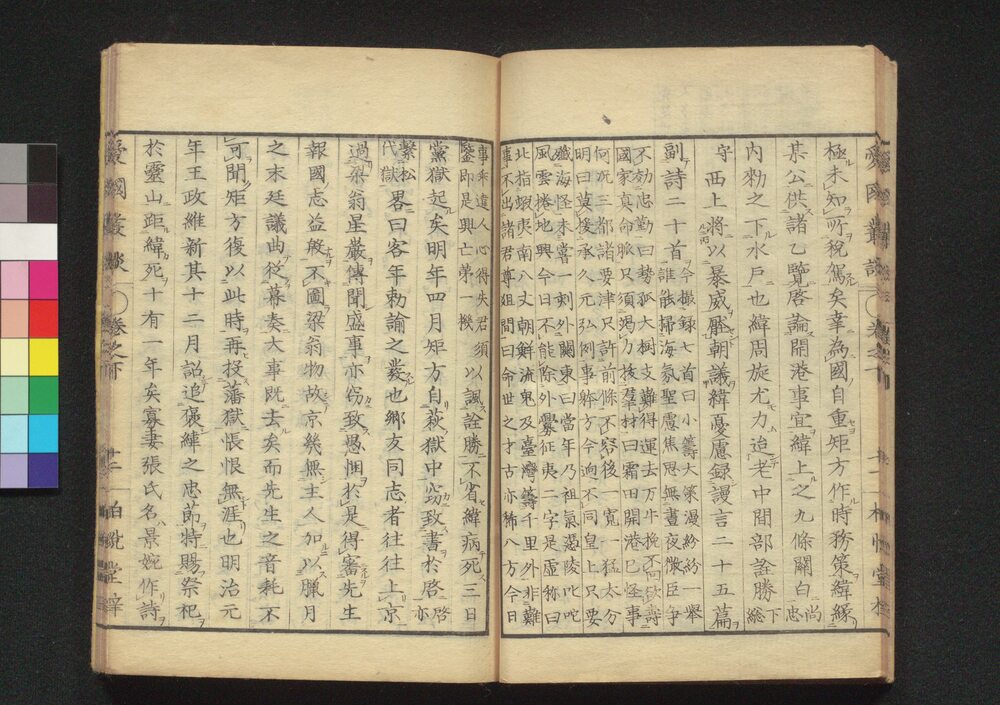 愛國叢談
極未知所稅駕矣幸為國自重矩方作時務策緯緣
某公供諸乙覽啓論開港事宜緯上之九條關白尚忠
内勑之下水戸也緯周旋尤力迨老中間部詮勝下総
守西上將以暴威壓朝議緯憂慮録謾言二十五篇
副詩二十首今撮録七首曰小籌大策漫紛紛一舉
誰能掃海氛聖慮焦思無晝夜微臣爭
不効忠勤曰勢孤大樹支難得運去万牛挽不回欲壽
國家真命脉只須竭力拔羣材曰霜田開港已怪事
何況三都諸要津只許前條不容後一寬一猛太分
明曰莫後承久元弘例事躰方今迥不同皇上只要
殲海怪未嘗一刺外關東曰當年乃祖氣憑陵叱咤
風雲捲地興今日不能除外釁征夷二字是虚称曰
北指蝦夷南八丈朝鮮流鬼及臺灣籌千里外非難
事不出諸君尊俎間曰命世之才古亦稀八方今日
事乘違人心得失君須
鑒即是興亡第一機
以諷詮勝不省緯病死三日
黨獄起矣明年四月矩方自萩獄中窃致書於啓啓亦
繫松代獄畧曰客年勑諭之發也郷友同志者往往上京
過梁翁星巖傳聞盛事亦窃致愚悃於是得審先生
報國志益敬不圖梁翁物故京畿無主人加以臘月
之末廷議曲從幕奏大事既去矣而先生之音耗不
可聞矩方復以此時再投藩獄悵恨無涯也明治元
年王政維新其十二月詔追褒緯之忠節特賜祭祀
於靈山距緯死十有一年矣寡妻張氏名景婉作詩
愛國叢談〇卷之下